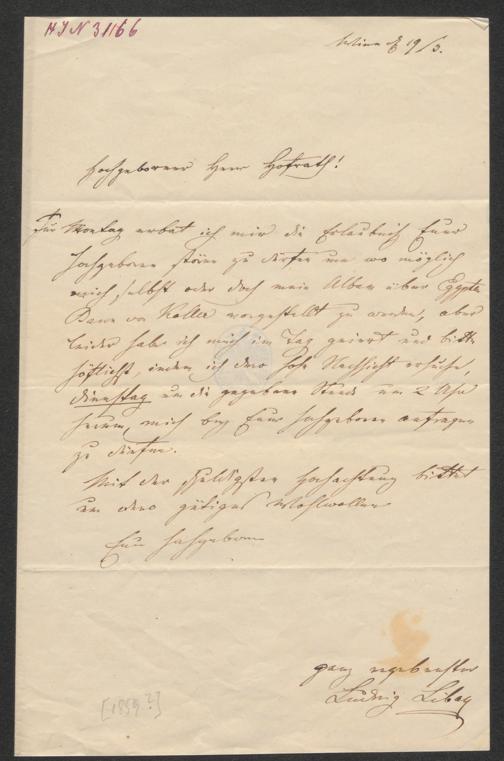 H I N 31166
Wien d 19/3.
Hochgeborner Herr Hofrath!
Für Montag erbat ich mir die Erlaubniß Euer
Hochgeboren stören zu dürfen um wo möglich
mich selbst oder doch mein Album über Egypten
Baron von Koller vorgestellt zu werden, aber
leider habe ich mich im Tag geirrt und bitte
höflichst, indem ich dero hohe Nachsicht ersuche,
Dienstag um die gegebene Stunde um 2 Uhr
herum, mich bey Euer Hochgeboren anfragen
zu dürfen.
Mit der schuldigsten Hochachtung bittet
um dero gütiges Wohlwollen
Euer Hochgeboren
ganz ergebenster
Ludwig Libay
[1859?]